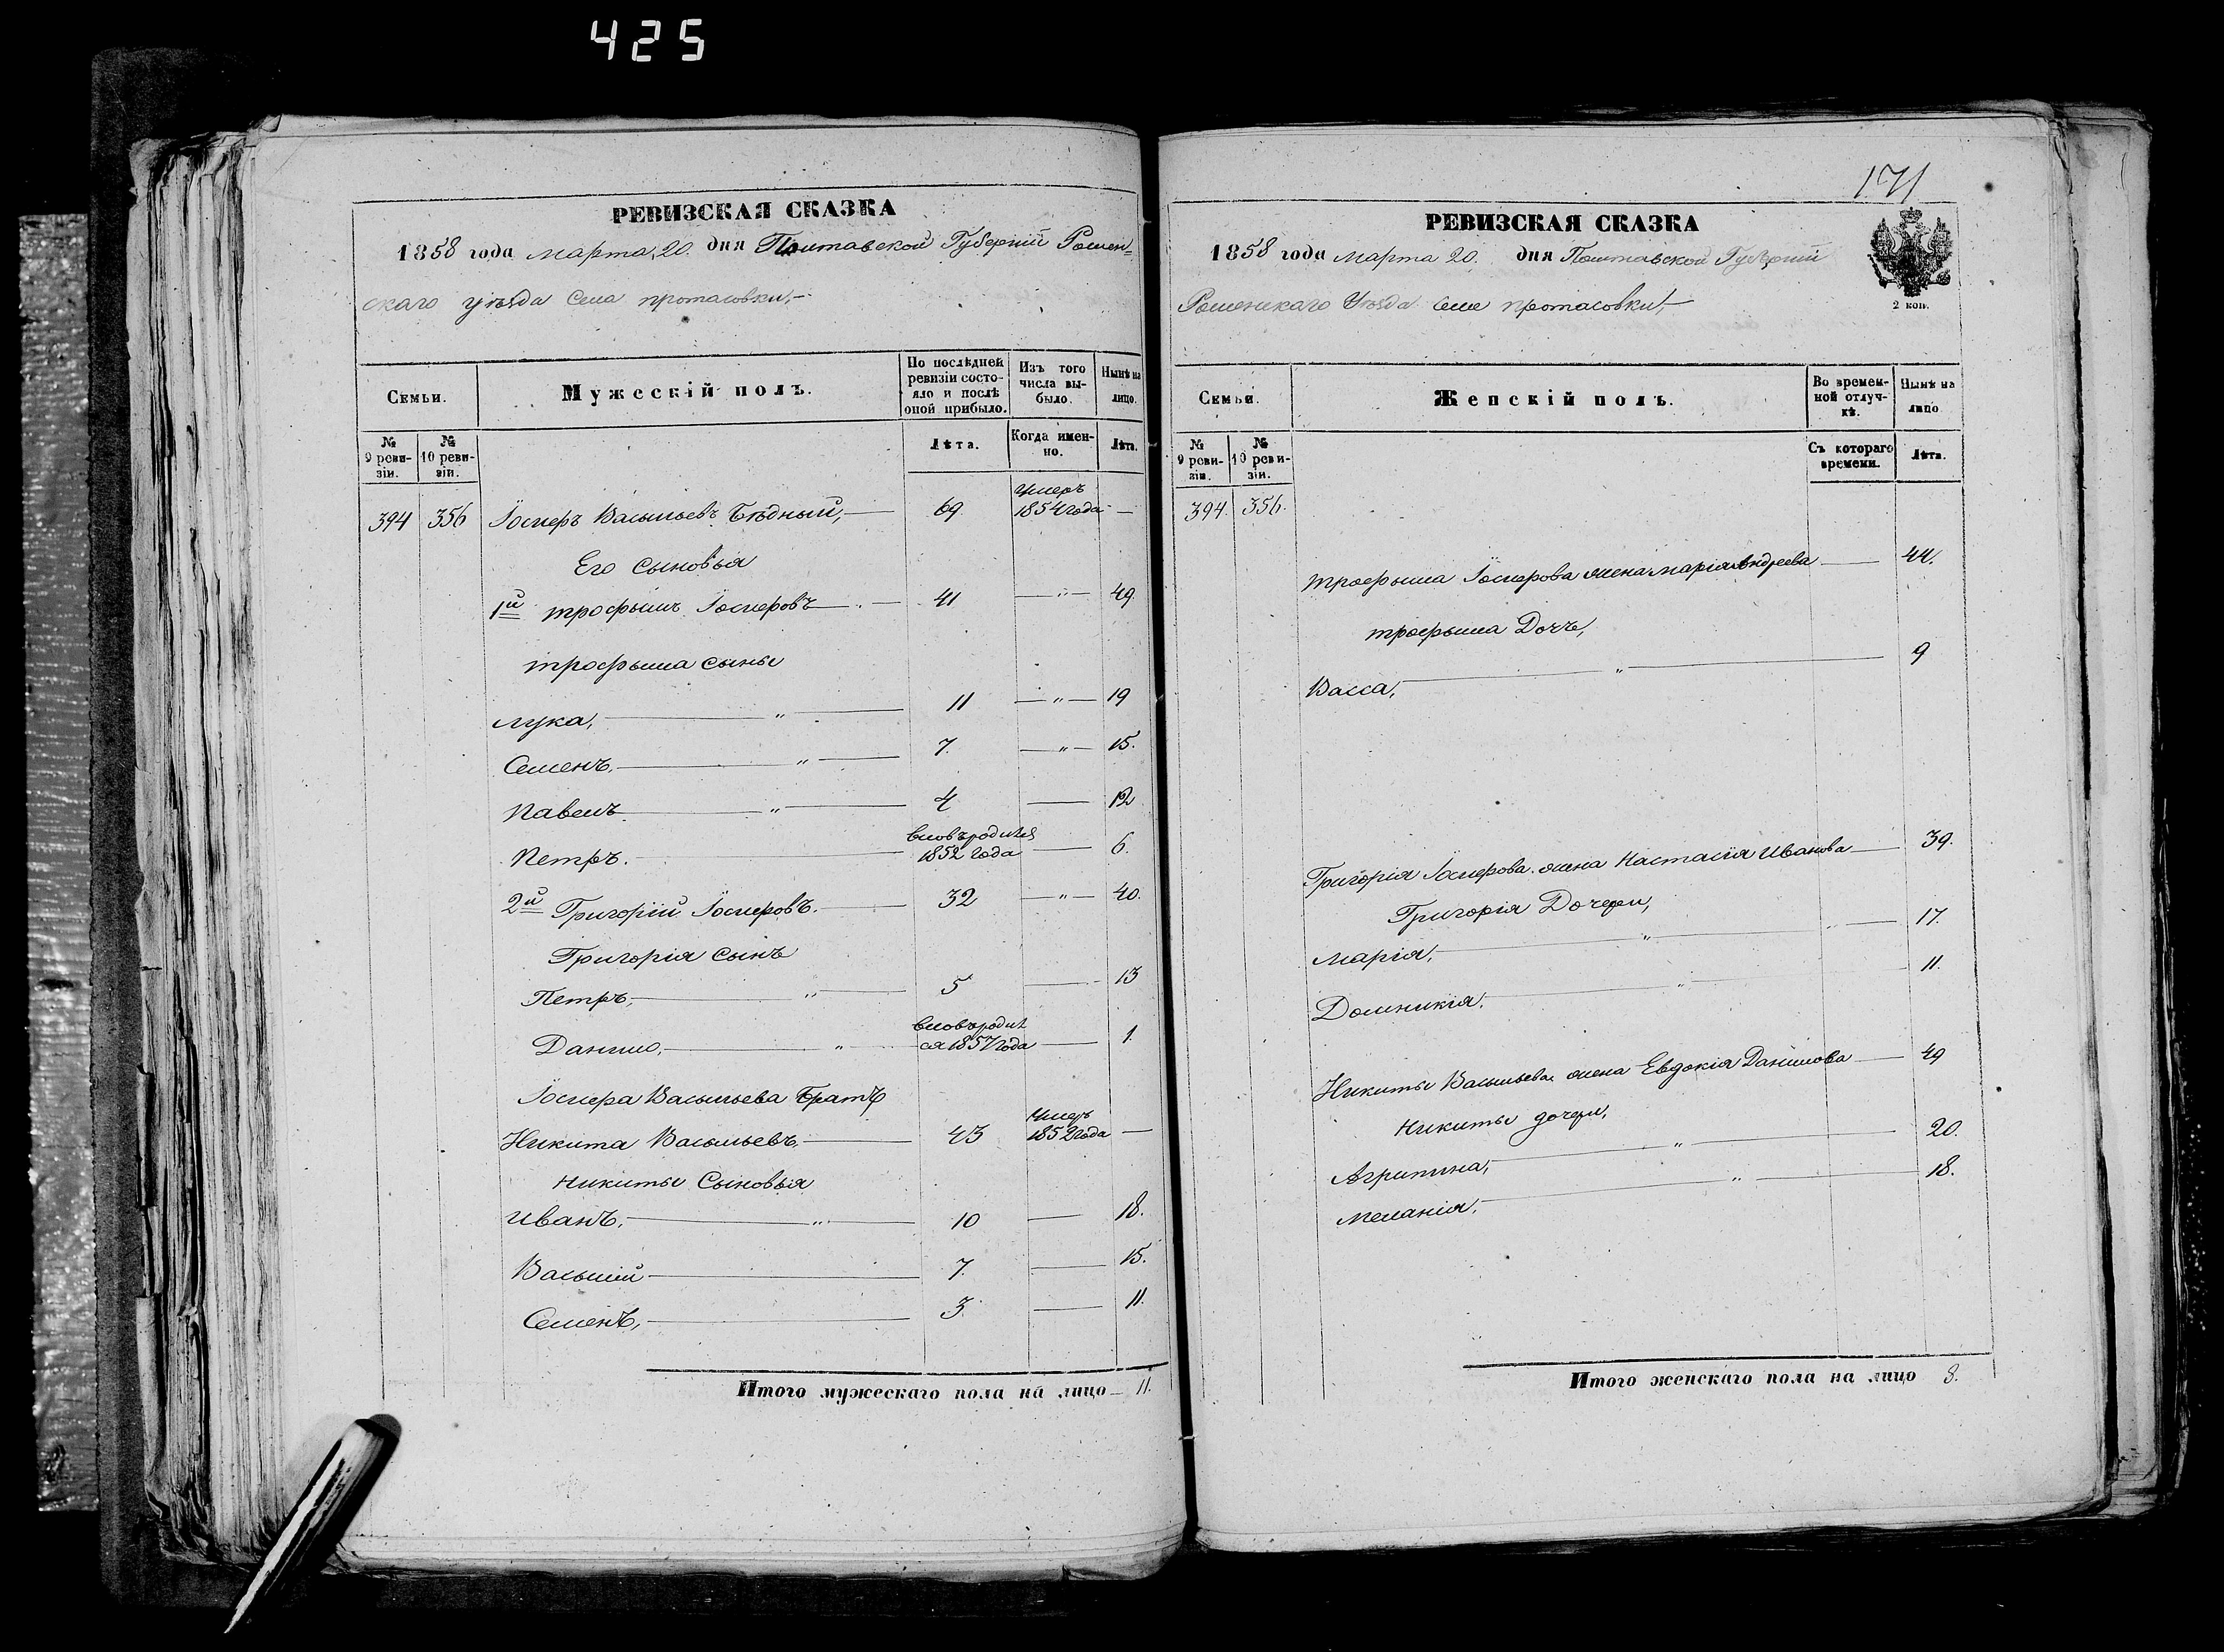 425
РЕВИЗСКАЯ СКАЗКА
1858 года марта, 20. дня Полтавской Губерніи Ромен=
скаго уѣзда Села протасовки,–
Семьи.
Мужескій полъ.
По послѣдней ревизіи состояло и послѣ оной прибыло.
Изъ того числа выбыло.
Нынѣ на лицо.
№ 9 ревизіи.
№ 10 ревизіи.
Лѣта.
Когда именно.
Лѣта.
394 356 Іосифъ Васильевъ Бѣдный, — 69 Умеръ 1854 года —
Его Сыновья
1й трофымъ Іосифовъ — 41 — " — 49
трофыма сыны
лука, — " — 11 — " — 19
Семенъ, — " — 7. — " — 15.
Павелъ — " — 4 — 12
Петръ. — вновьродился 1852 года — 6.
2й Григорій Іосифовъ. — 32 — " — 40.
Григорія сынъ
Петръ, — " — 5 — 13
Данило, — " — вновьродил ся 1857 года — 1.
Іосифа Васильева Братъ
Никита Васильевъ — 43 Умеръ 1852 года —
никиты Сыновья
иванъ, — " — 10 — 18.
Василій — 7. — 15.
Семенъ, — 3. — 11.
Итого мужескаго пола на лицо — 11.
171
РЕВИЗСКАЯ СКАЗКА
1858 года марта 20. дня Полтавской Губерніи
Роменскаго Уѣзда Села протасовки,–
2 коп.
Семьи.
Женскій полъ.
Во временной отлучкѣ.
Нынѣ на лицо
№ 9 ревизіи.
№ 10 ревизіи.
Съ котораго времени.
Лѣта.
394. 356.
трофыма Іосифова жена марія Андреева — 44.
трофыма Дочь,
Васса, — " — 9
Григорія Іосифова жена настасія Иванова — 39.
Григорія Дочери,
марія, — " — 17.
Домникія, — " — 11.
Никиты Васильева жена Евдокія Данилова — 49
никиты дочери,
Агрипина, — " — 20.
меланія, — " — 18.
Итого женскаго пола на лицо 8.